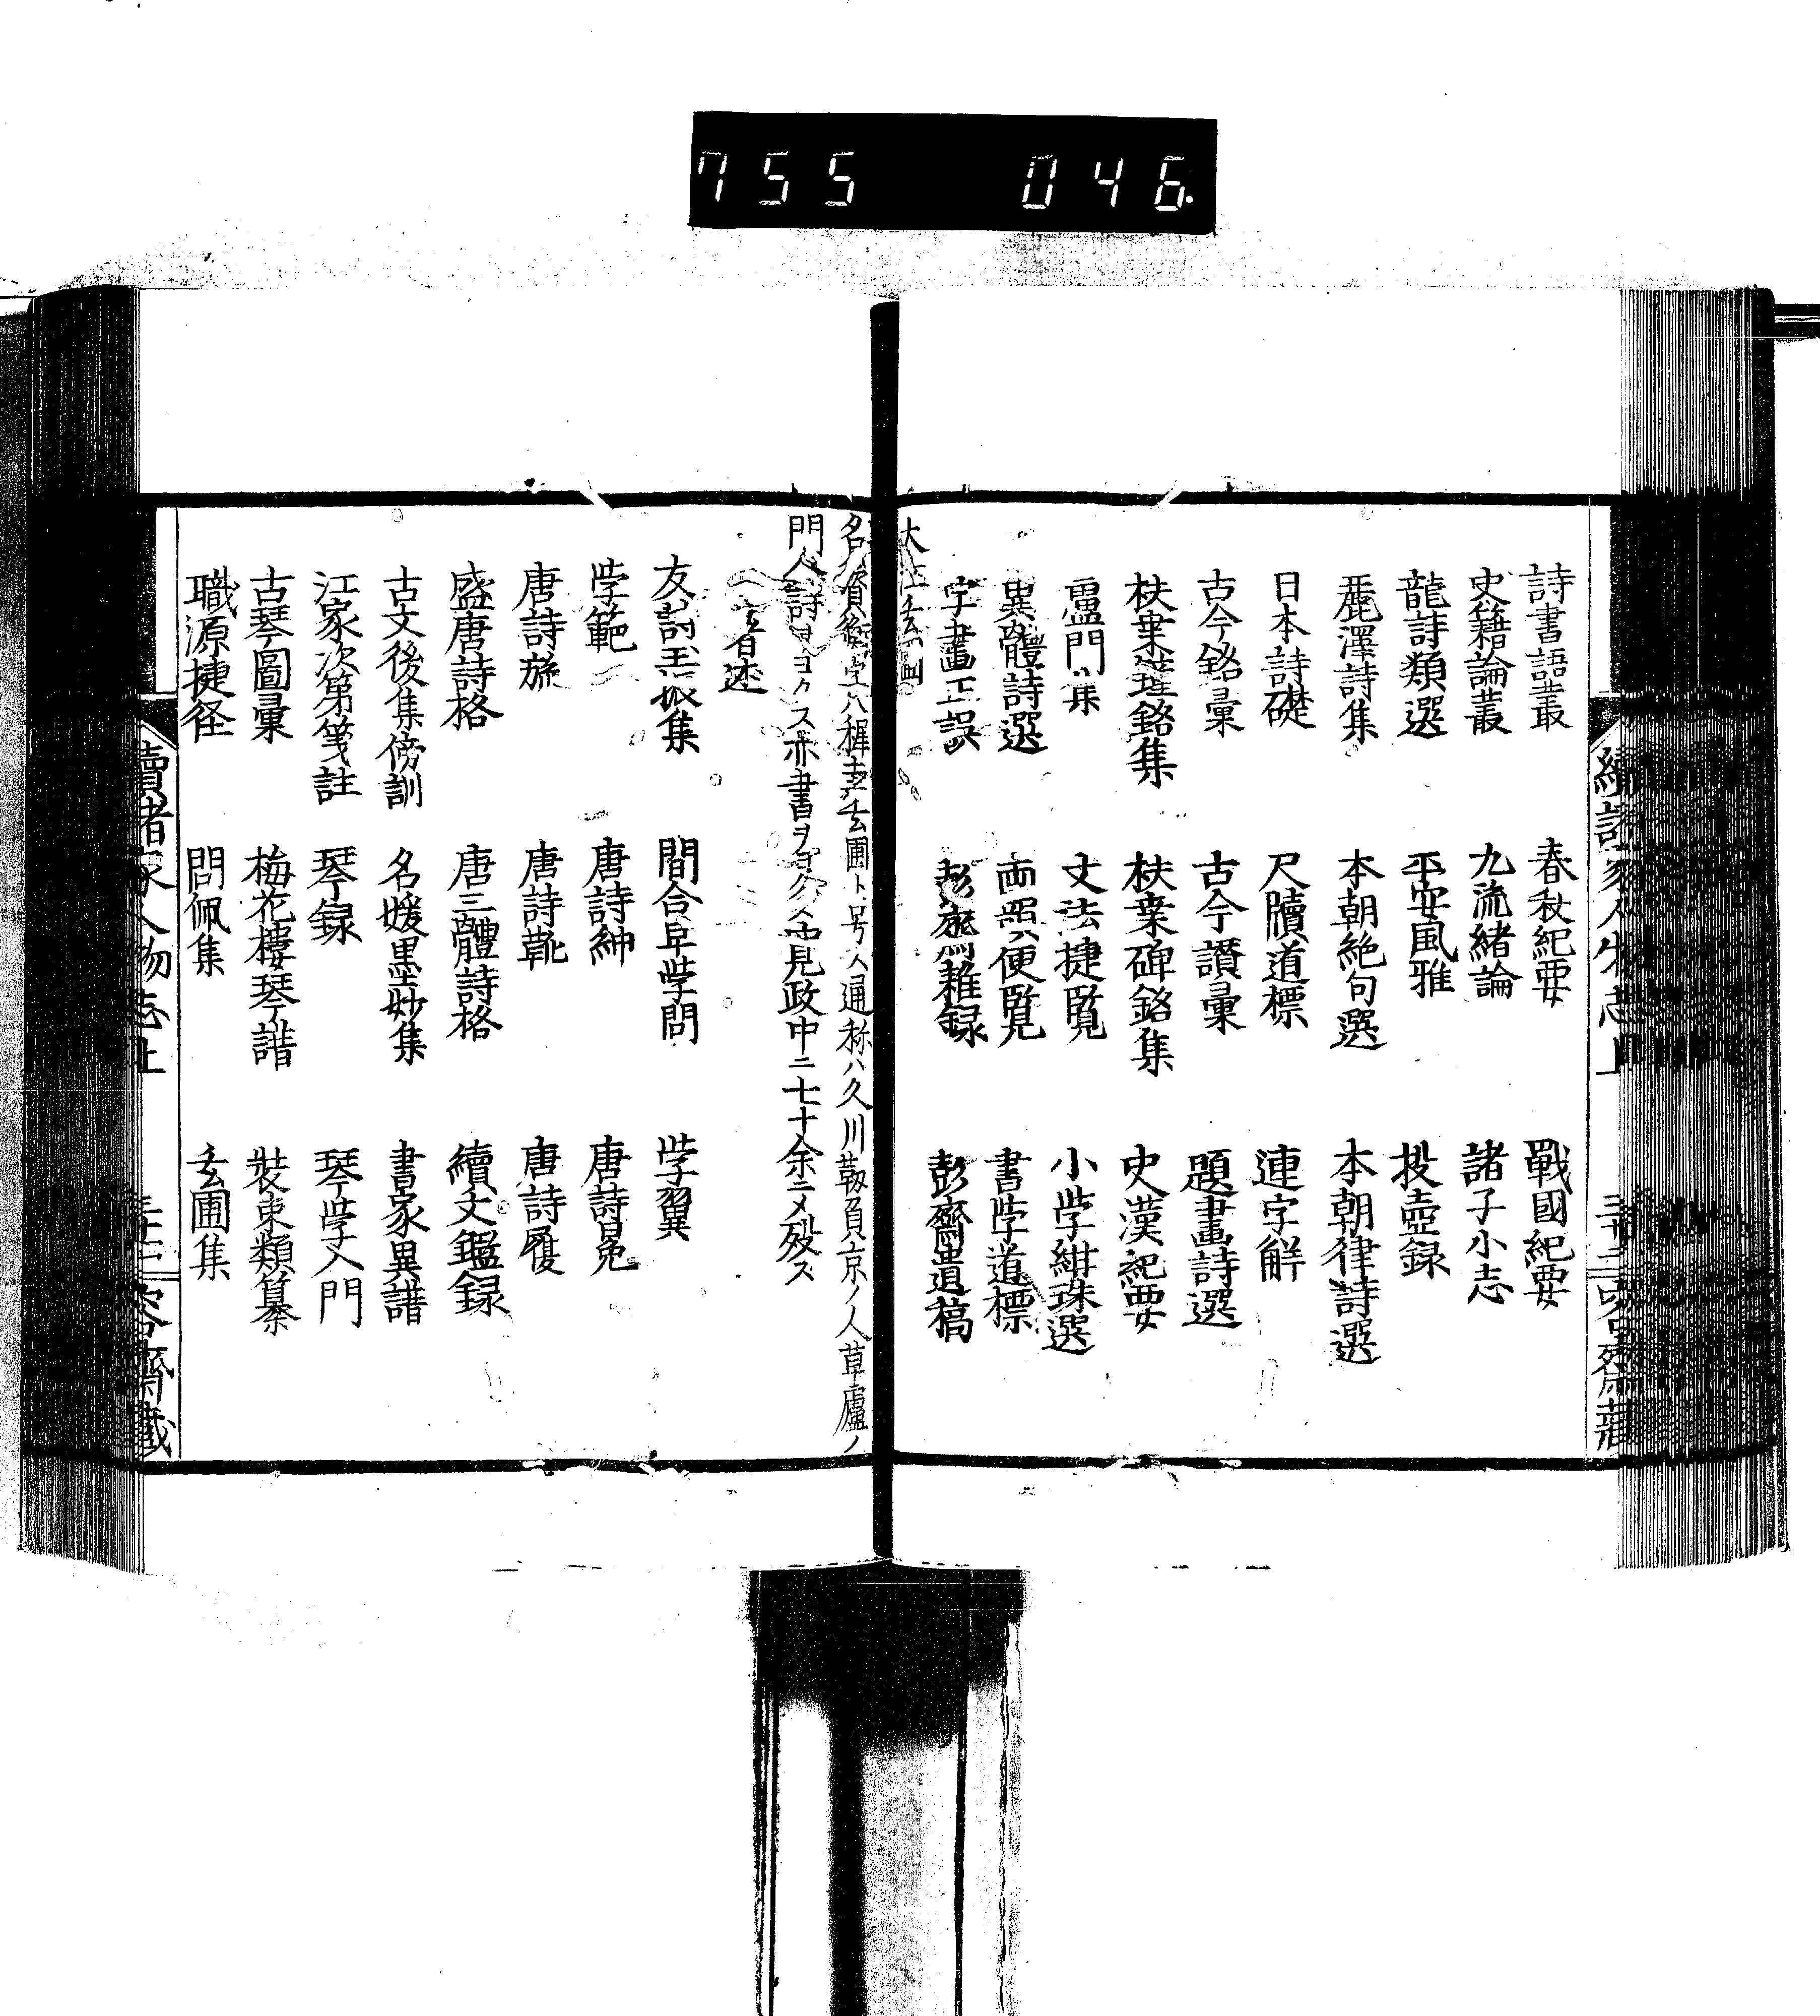 755 046
詩書語叢 春秋紀要 戰國紀要
史籍論叢 九流緒論 諸子小志
龍詩類選 平安風雅 投壺録
麗澤詩集 本朝絶句選 本朝律詩選
日本詩礎 尺牘道標 連字觧
古今銘彙 古今讃彙 題畫詩選
扶桒鐘銘集 扶桒碑銘集 史漢紀要
盧門集 文法捷覧 小学紺珠選
異體詩選 両照便覧 書学道標
字畫正誤 彭齋雜録 彭齋遺稿
大江玄圃
名ハ資衡字ハ穉圭玄圃ト号ス通称ハ久川靱負京ノ人草廬ノ
門人詩ヲヨクス亦書ヲヨクス 見政中ニ七十余ニメ殁ス
著述
友詩玉振集 間合早学問 学翼
学範 唐詩紳 唐詩冕
唐詩旒 唐詩靴 唐詩履
盛唐詩格 唐三體詩格 續文鑑録
古文後集傍訓 名媛墨妙集 書家異譜
江家次第箋註 琴録 琴学入門
古琴圖彙 梅花樓琴譜 裝束類纂
職源捷径 問佩集 玄圃集
續諸家人物志上 容齋藏